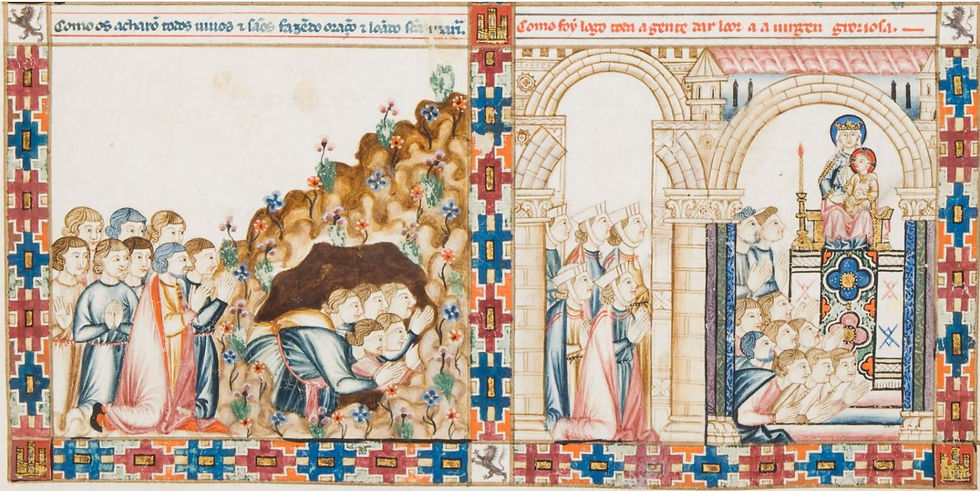 Como os acharõ todos uiuos ⁊ sãos fazẽdo oraçõ ⁊ loãdo sc̃a mari̅.
Como foy logo toda a gente dar loor a a uirgen groriosa.